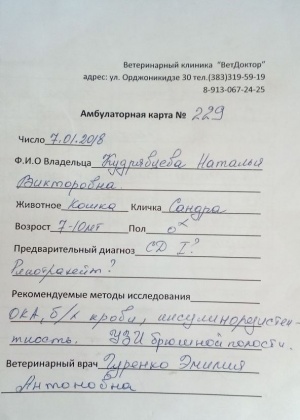 Ветеринарный клиника "ВетДоктор"
адрес: ул. Орджоникидзе 30 тел.(383)319-59-19
8-913-067-24-25
Амбулаторная карта № 229
Число 7.01.2018
Ф.И.О Владельца Кудрявцева Наталья
Викторовна
Животное Кошка Кличка Сандра
Возраст 7-10 лет Пол
Предварительный диагноз CD I?
?
Рекомендуемые методы исследования
ОКА, б/х крови, инсулинорезистен-
тность. УЗИ брюшной полости.
Ветеринарный врач Гуренко Эмилия
Антоновна